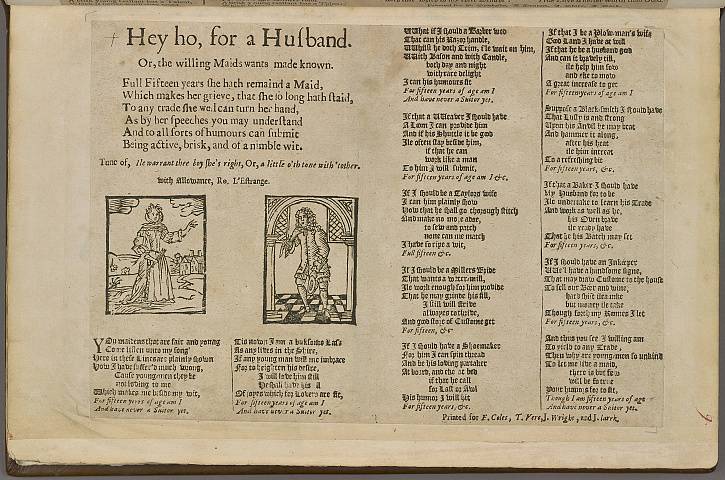 Hey ho, for a Husband.
Or, the willing Maids wants made known.
Full Fifteen years she hath remaind a Maid,
Which makes her grieve, that she so long hath staid,
To any trade she wel can turn her hand,
As by her speeches you may understand
And to all sorts of humours can submit
Being active, brisk, and of a nimble wit.
Tune of, Ile warrant thee boy she's right, Or, a little o'th tone with 'tother.
with Allowance, Ro. L'Estrange.
YOu maidens that are fair and young
Come listen unto my song
Here in these Lines are plainly shown
How I have suffer'd much wrong,
Cause young-men they be
not loving to me
Which makes me beside my wit,
For fifteen years of age am I
And have never a Sutor yet.
Tis known I am a buksome Lass
As any lives in the shire,
If any young man will me imbrace
For to heighten his desire,
I will love him still
He shall have his
Of joyes which for Lovers are fit,
For fifteen years of age am I
And have never a Sutor yet.
What if I should a Barber wed
That can his Razor handle,
Whilst he doth Trim, Ile wait on him,
With Bason and with Candle,
both day and night
with rare delight
I can his humours fit
For fifteen years of age am I
And have never a Sutor yet,
If that a Weaver I should have
A Loom I can provide him
And if his Shuttle it be god
Ile often stay beside him,
if that he can
work like a man
To him I will submit,
For fifteen years of age am I &c,
If I should be a Taylors wife
I can him plainly show
How that he shall go thorough stitch
And make no more adoe,
to sew and patch
none can me match
I have so ripe a wit,
Full fifteen &c.
If I should be a Millers Bride
That wants a water-mill,
Ile work enough for him provide
That he may grinde his fill,
I still will strive
alwayes to thrive,
And god store of Custome get
For fifteen, &c.
If I should have a Shoemaker
For him I can spin thread
And be his loving partaker
At board, and eke at bed
if that he call
for Last or Awl
His humor I will hit
For fifteen years, &c.
If that I be a Plow-man's wife
God Land I have at will
If that he be a husband god
And can it bravely till,
ile help him sow
and eke to mow
A great increase to get
For fifteen years of age am I
Suppose a Black-smith I should have
That Lusty is and strong
Upon his Anvil he may beat
And hammer it along,
after his heat
ile him intreat
To a refreshing bit
For fifteen years, &c.
If that a Baker I should have
My Husband for to be
Ile undertake to learn his Trade
And work as well as he,
his Oven have
ile ready have
That he his Batch may set
For fifteen years, &c.
If I should have an Inkeeper
Wee'l have a handsome signe,
That may draw Custome to the house
To sell our Beer and wine,
but money ile take
Though for th my Romes I let
For fifteen years, &c.
And thus you see I willing am
To yield to any Trade,
Then why are young-men so unkind
To let me live a maid,
there is but few
will be so true
Your humors for to fit,
Though I am fifteen years of age
And have never a Sutor yet.
Printed for F. Coles, T. Vere, J. Wright, and J. Clark.